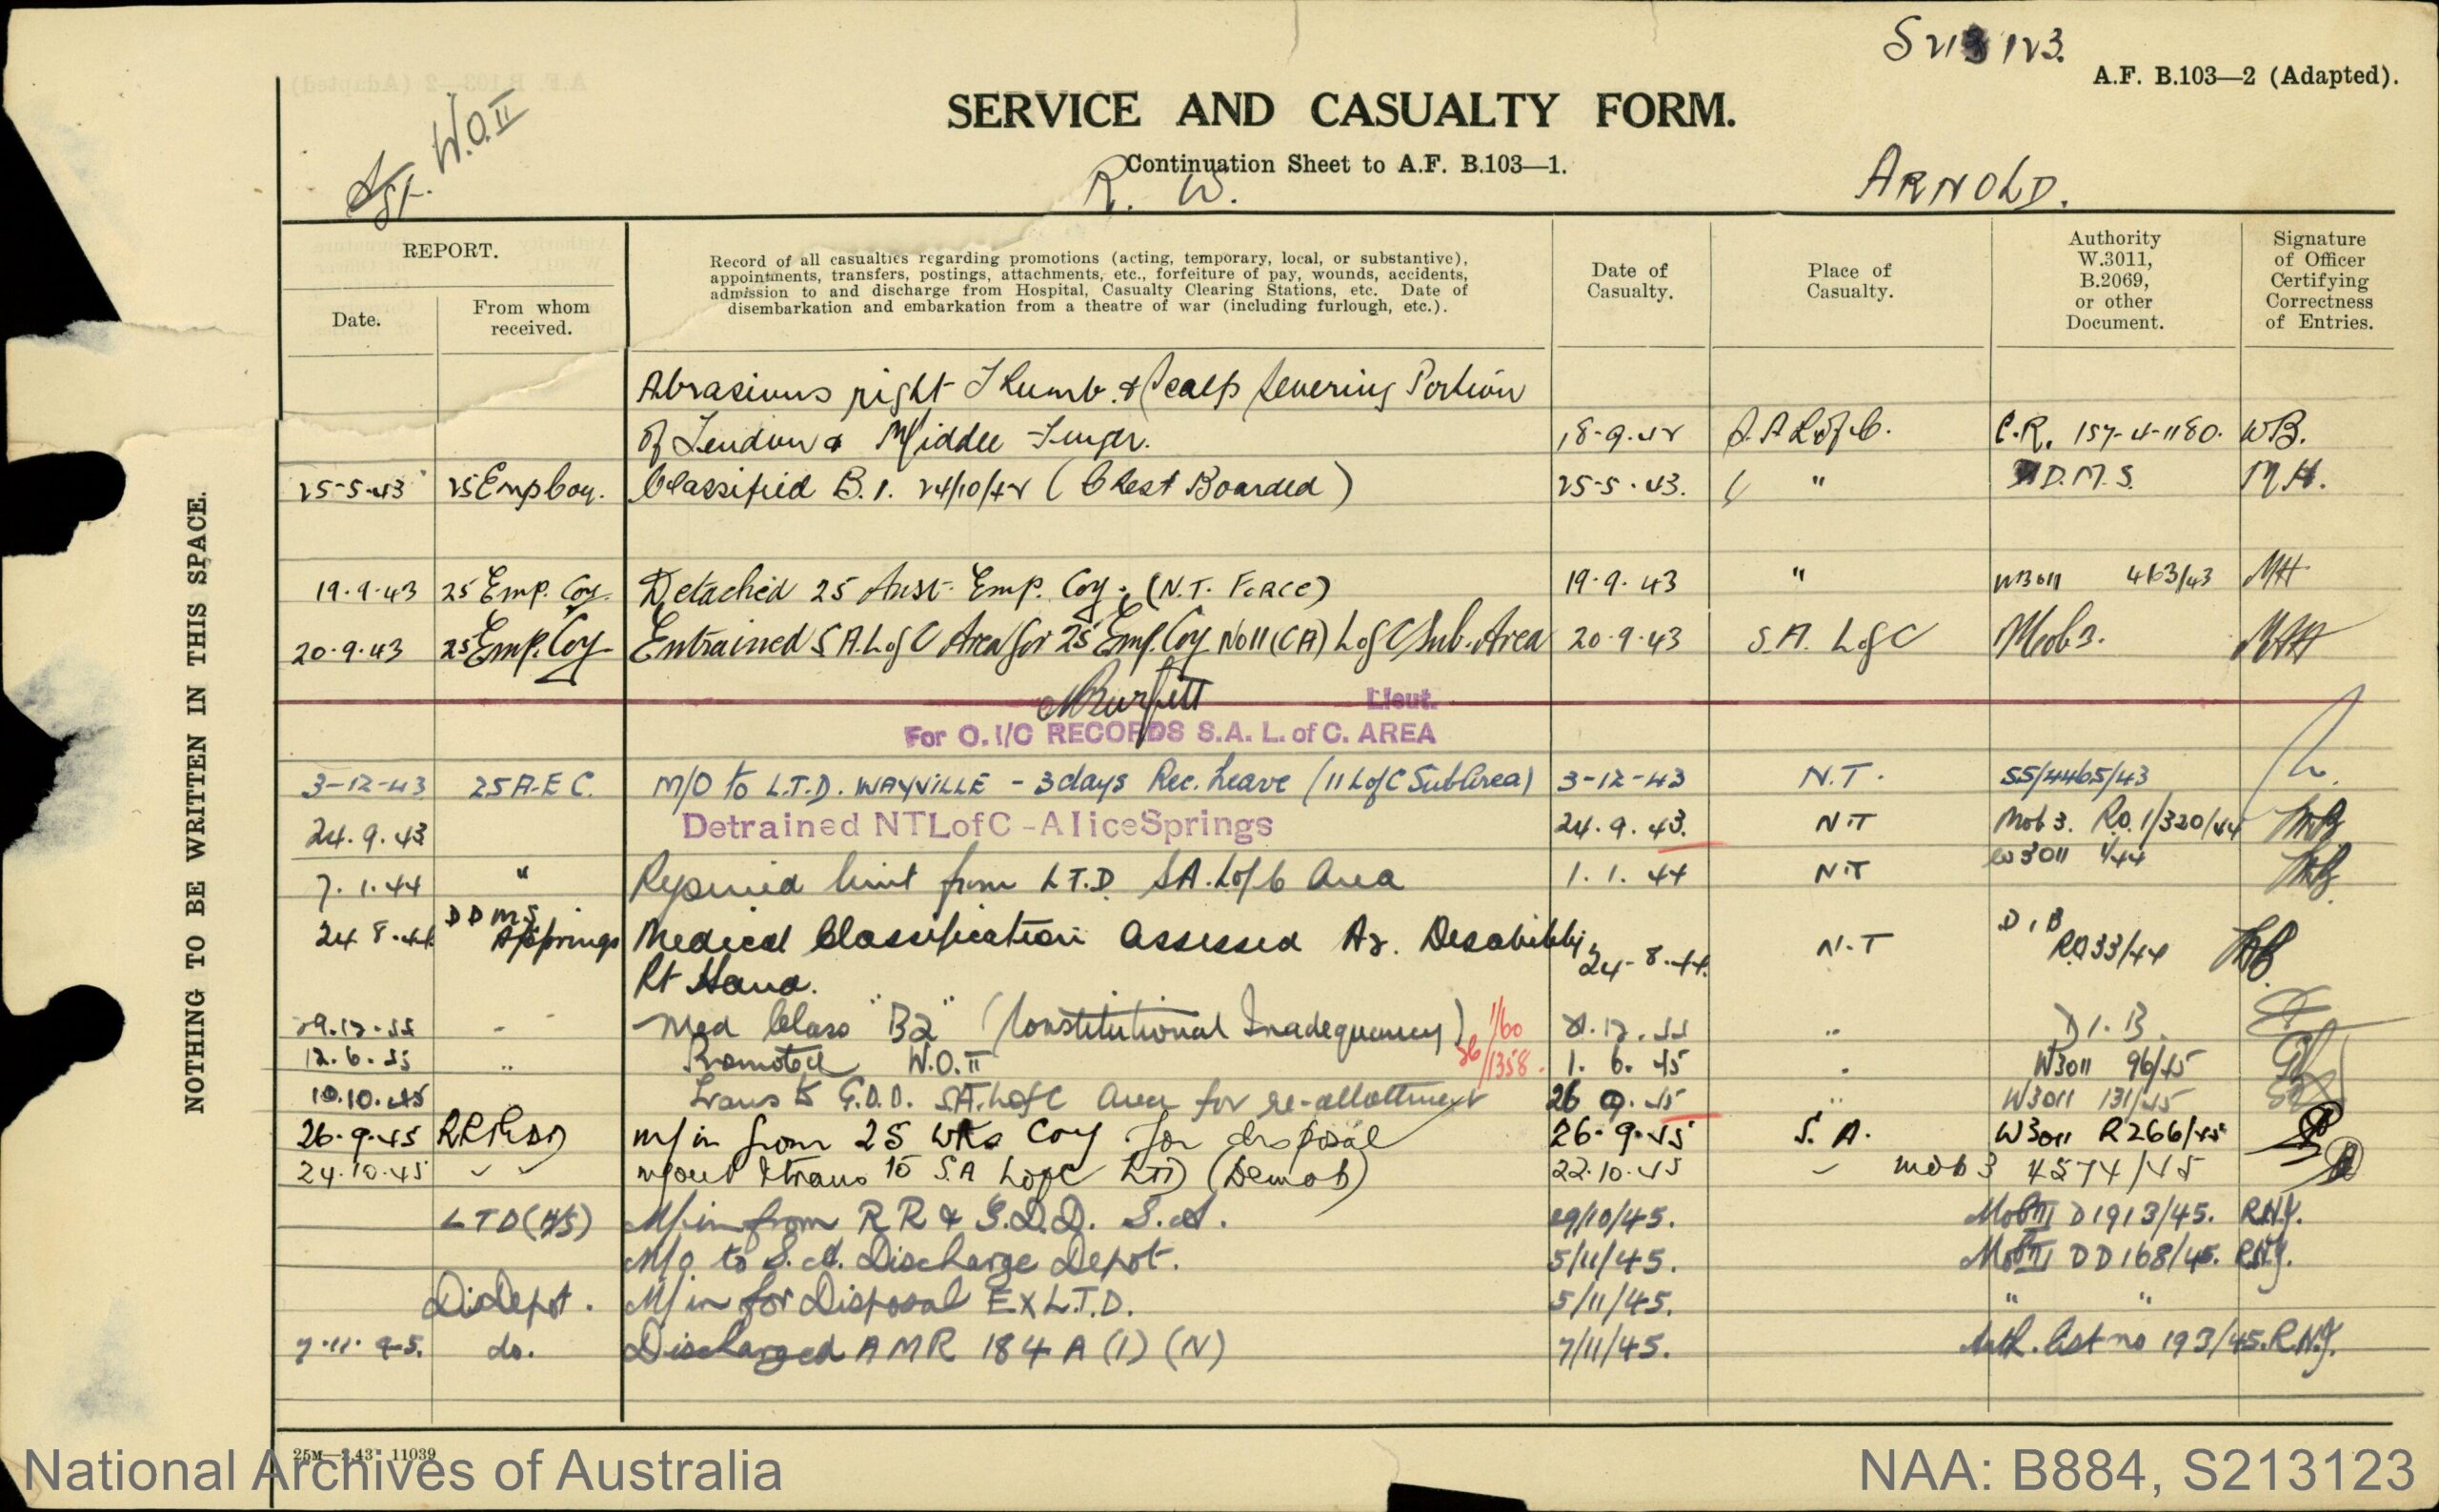 S213123.
A.F. B.103—2 (Adapted).
SERVICE AND CASUALTY FORM.
Continuation Sheet to A.F. B.103—1.
Sgt. W.O.II
R. W. ARNOLD.
NOTHING TO BE WRITTEN IN THIS SPACE.
REPORT.
Date.
From whom received.
Record of all casualties regarding promotions (acting, temporary, local, or substantive),
appointments, transfers, postings, attachments, etc., forfeiture of pay, wounds, accidents,
admission to and discharge from Hospital, Casualty Clearing Stations, etc. Date of
disembarkation and embarkation from a theatre of war (including furlough, etc.).
Date of Casualty.
Place of Casualty.
Authority W.3011, B.2069, or other Document.
Signature of Officer Certifying Correctness of Entries.
Abrasions right Thumb & Scalp severing Portion
of Tendon Middle Finger. 18-9-42 S.A L of C. C.R. 157-4-1180. WB.
25-5-43 25 Emp Coy. Classified B.1. 24/10/42 (Chest Boarded) 25-5-43. " D.M.S. M.H.
19.9.43 25 Emp. Coy. Detached 25 Aust. Emp. Coy. (N.T. Force) 19.9.43 " W3011 463/43 MH
20.9.43 25 Emp. Coy Entrained S.A. L of C Area for 25 Emp. Coy No 11 (CA) L of C Sub. Area 20.9.43 S.A. L of C Mob 3. MH
Burfitt Lieut.
For O. I/C RECORDS S.A. L. of C. AREA
3-12-43 25 A.E C. M/O to L.T.D. WAYVILLE - 3 days Rec. Leave (11 L of C Sub Area) 3-12-43 N.T. SS/4465/43
24.9.43 Detrained NTLofC - Alice Springs 24.9.43. NT Mob 3. R.O. 1/320/44
7.1.44 " Rejoined Unit from L.T.D. S.A. L of C Area 1.1.44 NT W3011 1/44
24 8.44 DDMS A/Springs Medical Classification Assessed A2. Disability 24-8-44. N.T D 1 B RO 33/44
Rt Hand.
29.12.44 " Med Class "B2" (Constitutional Inadequacy) 1/60 .12.44 " D 1. B.
12.6.45 " Promoted W.O.II 36/1358. 1.6.45 " W3011 96/45
10.10.45 Trans to G.D.D. S.A. L of C Area for re-allottment 26 9.45 " W3011 131/45
26.9.45 RR & GDD M/in from 25 Wks Coy for disposal 26.9.45 S. A. W3011 R266/45
24.10.45 " " M/out & trans to S.A L of C LTD (Demob) 22.10.45 " Mob 3 4574/45
LTD (H/S) M/in from R R & G.D.D. S.A. 29/10/45. Mob III D1913/45. R.N.J.
M/o to S.A. Discharge Depot. 5/11/45. Mob III DD168/45. R.N.J.
DisDepot. M/in for Disposal Ex L.T.D. 5/11/45. " "
7.11.45. do. Discharged AMR 184 A (1) (N) 7/11/45. Auth. list no 193/45. R.N.J.
25M—3.43· 11039
National Archives of Australia
NAA: B884, S213123